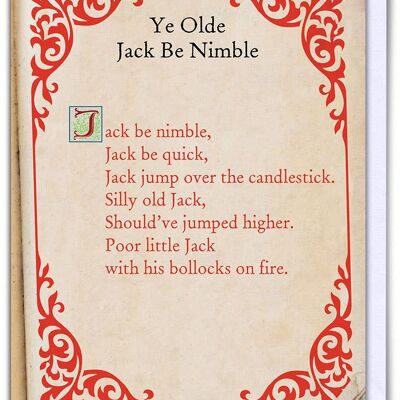 Ye Olde
Jack Be Nimble
Jack be nimble,
Jack be quick,
Jack jump over the candlestick.
Silly old Jack,
Should've jumped higher.
Poor little Jack
with his bollocks on fire.